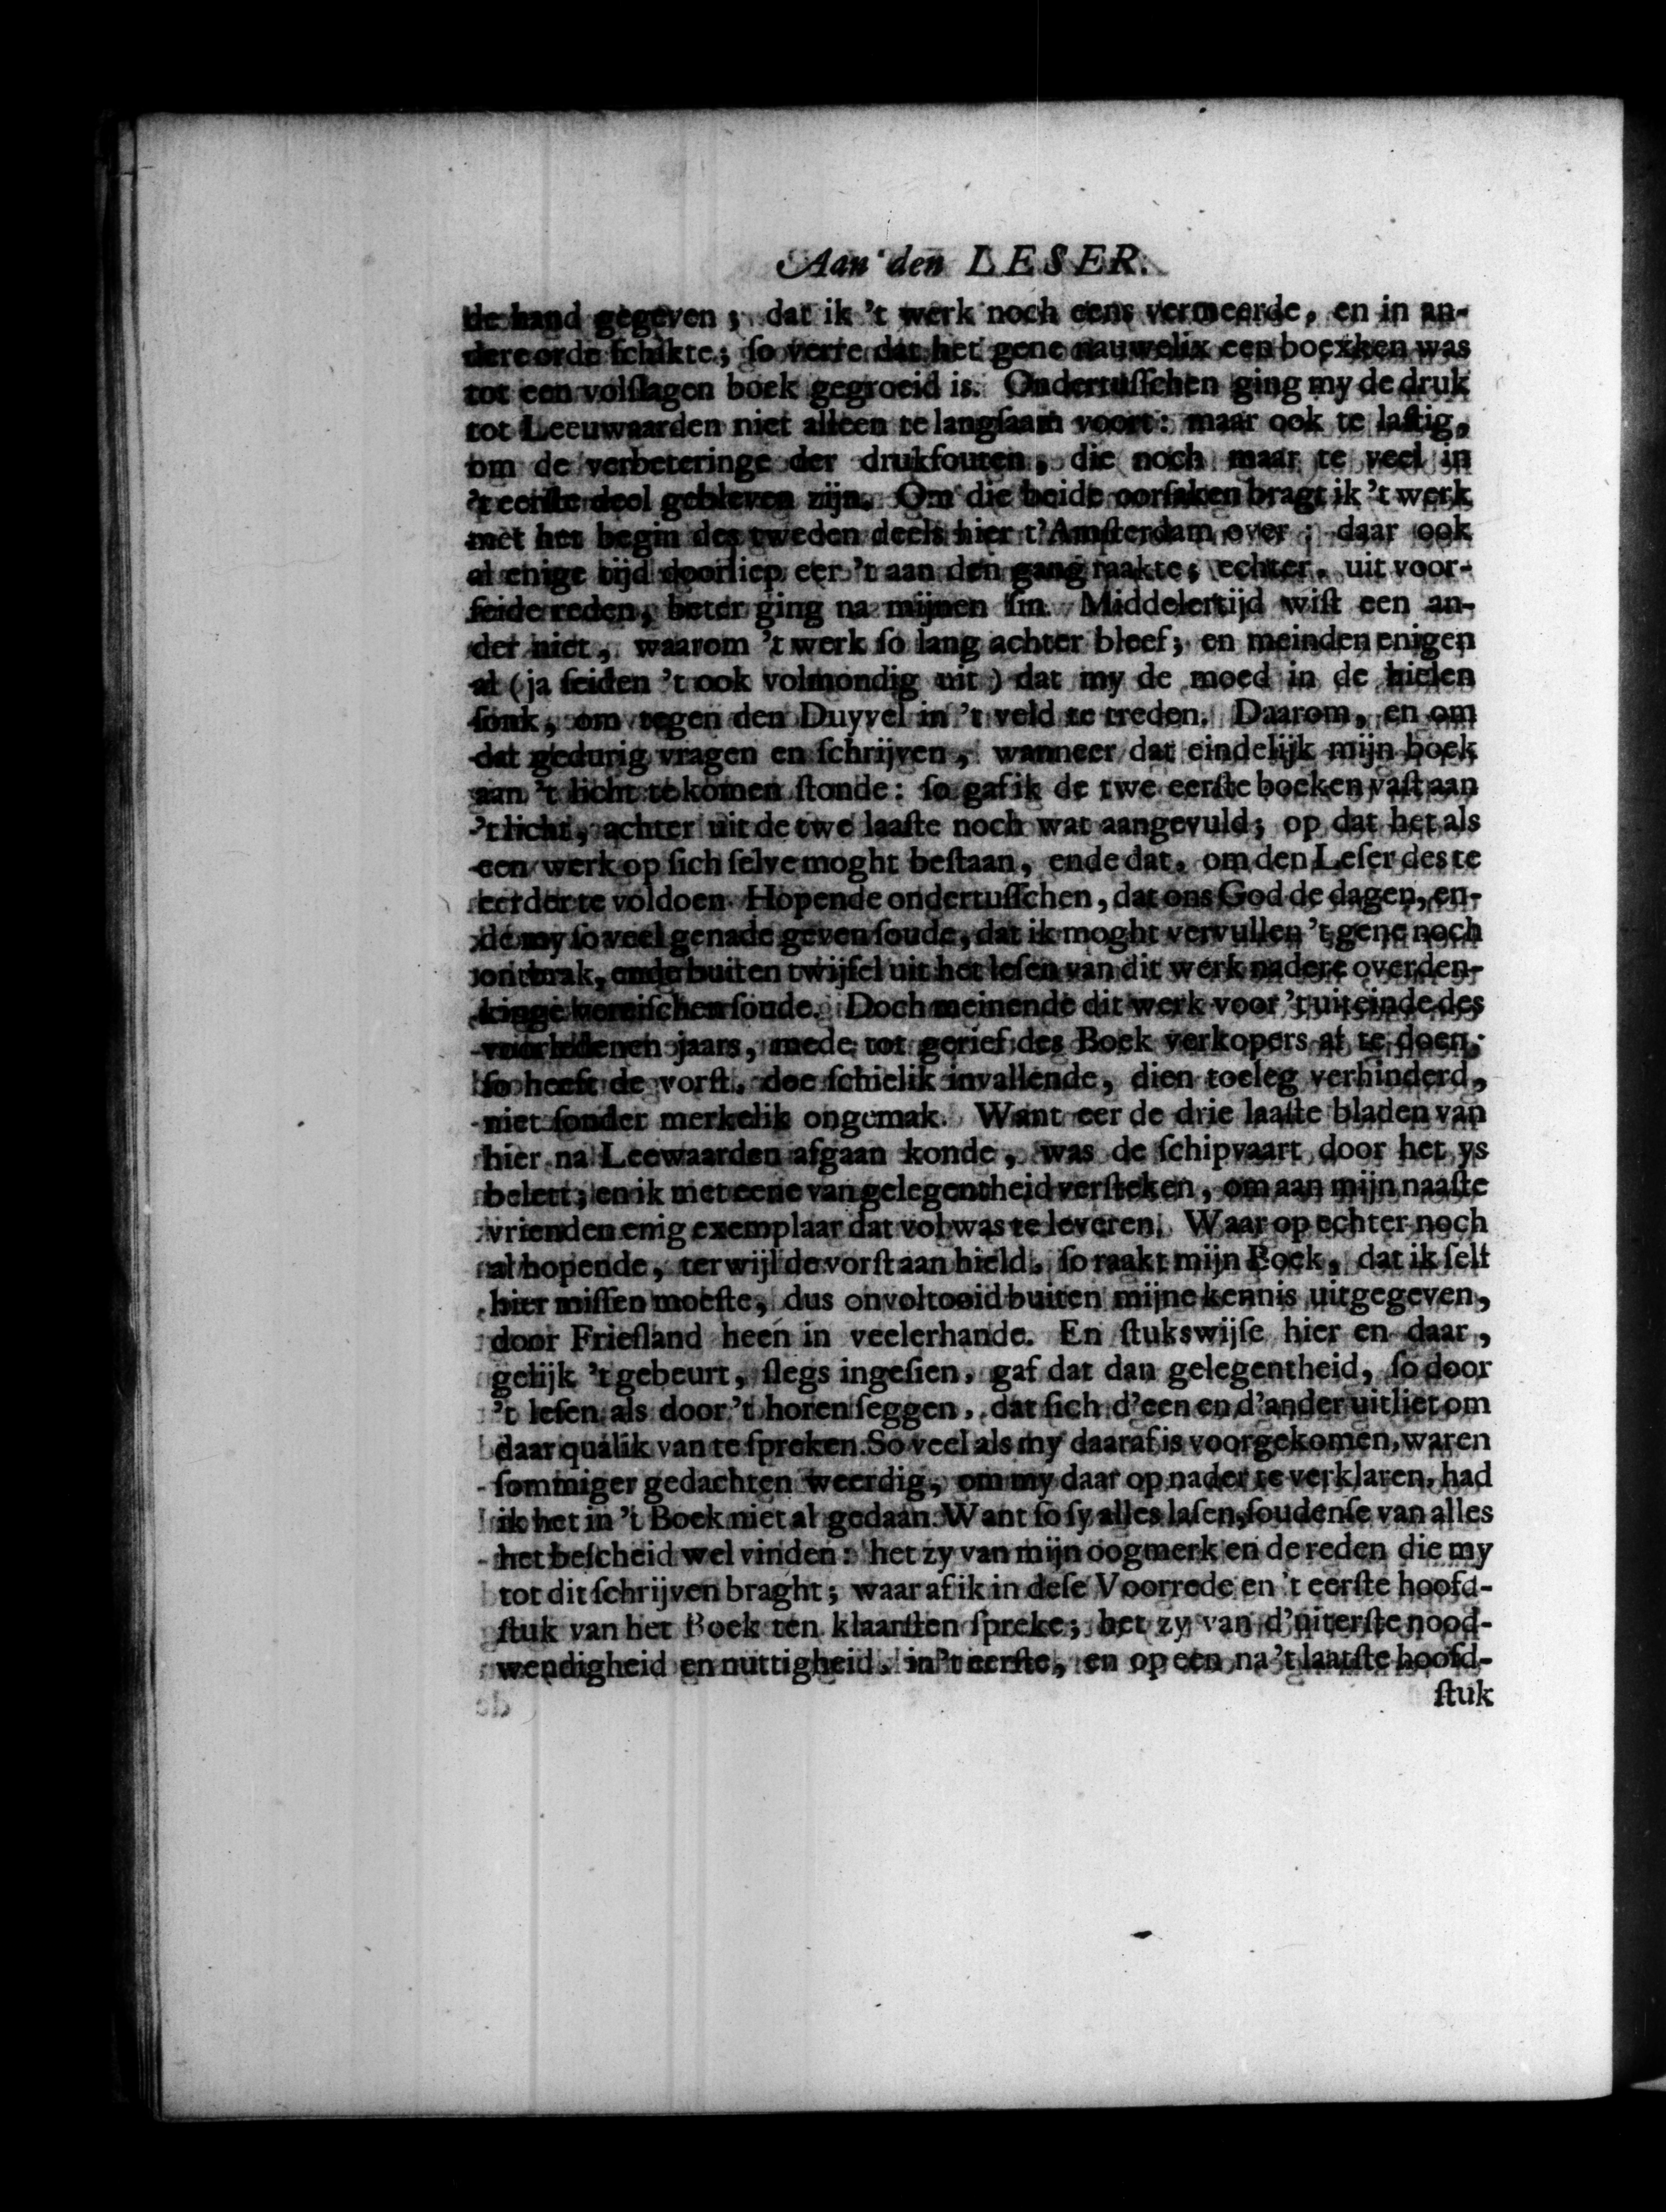 Aan den LESER.
de hand gegeven; dat ik 't werk noch eens vermeerde, en in an-
dere orde ſchikte; ſo verre dat het gene nauwelix een boexken was
tot een volſlagen boek gegroeid is. Ondertuſſchen ging my de druk
tot Leeuwaarden niet alleen te langſaam voort: maar ook te laſtig,
om de verbeteringe der drukfouten, die noch maar te veel in
't eerſte deel gebleven zijn. Om die beide oorſaken bragt ik 't werk
met het begin des tweden deels hier t'Amſterdam over; daar ook
al enige tijd doorliep eer 't aan den gang raakte; echter, uit voor-
ſeide reden, beter ging na mijnen ſin. Middelertijd wiſt een an-
der niet, waarom 't werk ſo lang achter bleef; en meinden enigen
al (ja ſeiden 't ook volmondig uit) dat my de moed in de hielen
ſonk, om tegen den Duyvel in 't veld te treden. Daarom, en om
dat gedurig vragen en ſchrijven, wanneer dat eindelijk mijn boek
aan 't licht te komen ſtonde: ſo gaf ik de twe eerſte boeken vaſt aan
't licht, achter uit de twe laaſte noch wat aangevuld; op dat het als
een werk op ſich ſelve moght beſtaan, ende dat, om den Leſer des te
eerder te voldoen. Hopende ondertuſſchen, dat ons God de dagen, en-
de my ſo veel genade geven ſoude, dat ik moght vervullen 't gene noch
ontbrak, ende buiten twijfel uit het leſen van dit werk nadere overden-
kinge vereiſchen ſoude. Doch meinende dit werk voor 't uiteinde des
voorledenen jaars, mede tot gerief des Boek verkopers af te doen;
ſo heeft de vorſt, doe ſchielik invallende, dien toeleg verhinderd,
niet ſonder merkelik ongemak. Want eer de drie laaſte bladen van
hier na Leewaarden afgaan konde, was de ſchipvaart door het ys
belett; en ik met eene van gelegentheid verſteken, om aan mijn naaſte
vrienden enig exemplaar dat vol was te leveren. Waar op echter noch
al hopende, terwijl de vorſt aan hield, ſo raakt mijn Boek, dat ik ſelf
hier miſſen moeſte, dus onvoltooid buiten mijne kennis uitgegeven,
door Frieſland heen in veelerhande. En ſtukswijſe hier en daar,
gelijk 't gebeurt, ſlegs ingeſien, gaf dat dan gelegentheid, ſo door
't leſen als door 't horen ſeggen, dat ſich d'een en d'ander uitliet om
daar qualik van te ſpreken. So veel als my daar af is voorgekomen, waren
ſommiger gedachten weerdig, om my daar op nader te verklaren, had
ik het in 't Boek niet al gedaan. Want ſo ſy alles laſen, ſoudenſe van alles
het beſcheid wel vinden: het zy van mijn oogmerk en de reden die my
tot dit ſchrijven braght; waar af ik in deſe Voorrede en 't eerſte hoofd-
ſtuk van het Boek ten klaarſten ſpreke; het zy van d'uiterſte nood-
wendigheid en nuttigheid, in 't eerſte, en op een na 't laatſte hoofd-
ſtuk